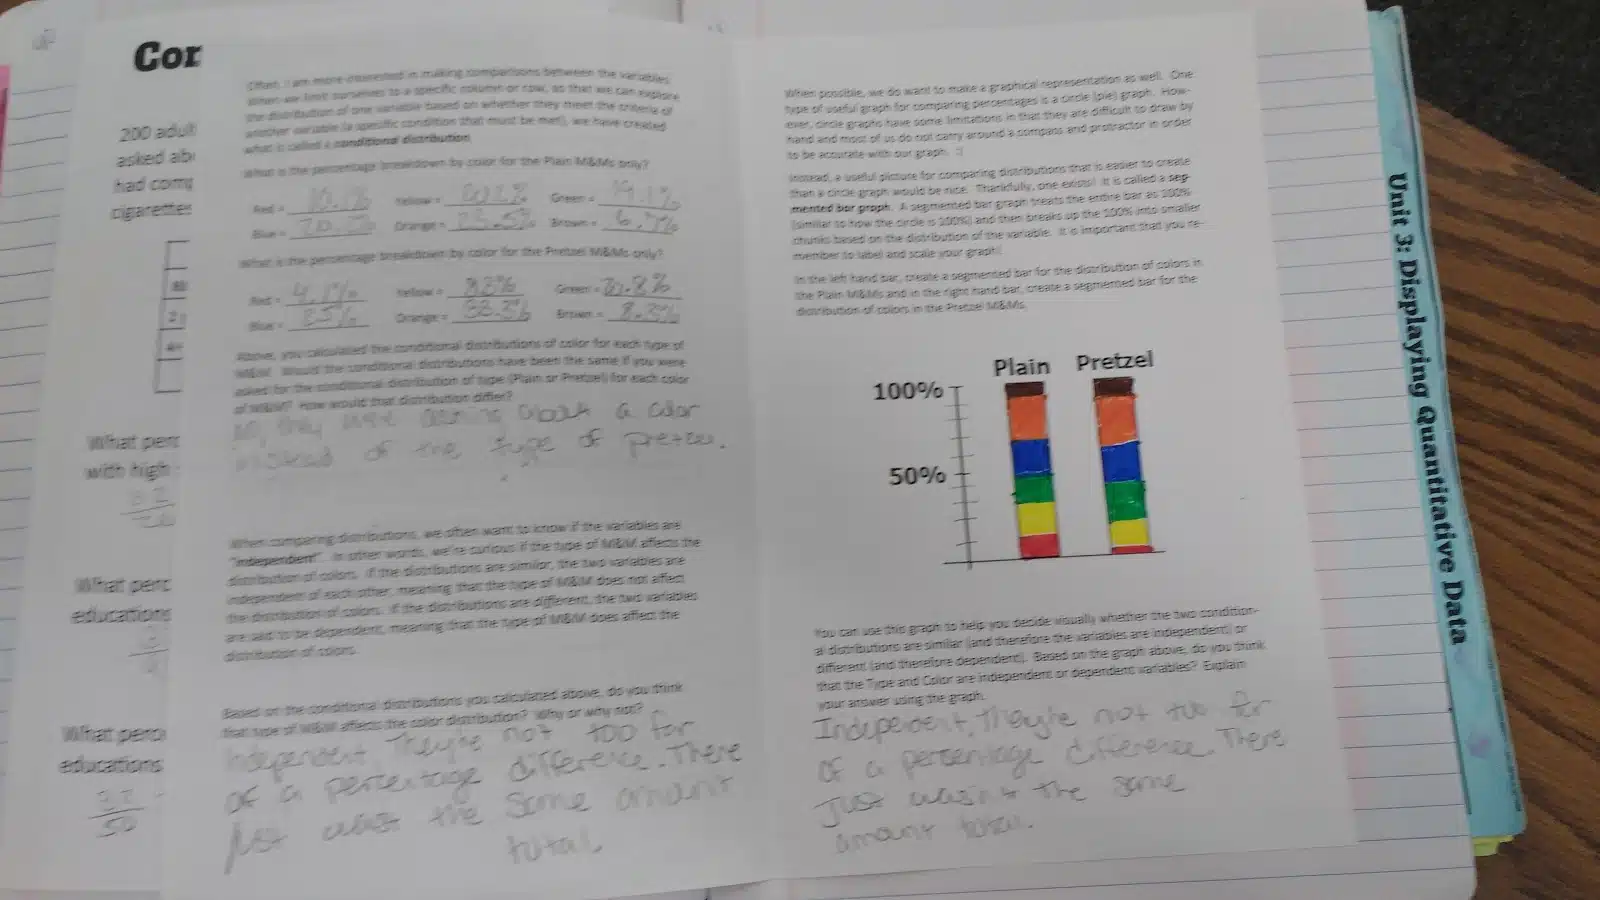 Con
200 adul
asked abo
had comp
cigarettes
What perc
with high
What perc
educations
What perce
educations
92
50
Often, I am more interested in making comparisons between the variables.
When we limit ourselves to a specific column or row, so that we can explore
the distribution of one variable based on whether they meet the criteria of
another variable (a specific condition that must be met), we have created
what is called a conditional distribution.
What is the percentage breakdown by color for the Plain M&Ms only?
Red = Yellow = Green = 19.1%
Blue = Orange = 23.5% Brown =
What is the percentage breakdown by color for the Pretzel M&Ms only?
Red = 4.1% Yellow = Green =
Blue = 25% Orange = Brown = 8.3%
Above, you calculated the conditional distributions of color for each type of
M&M. Would the conditional distributions have been the same if you were
asked for the conditional distribution of type (Plain or Pretzel) for each color
of M&M? How would that distribution differ?
No, they were asking about a color
instead of the type of pretzel.
When comparing distributions, we often want to know if the variables are
"independent". In other words, we're curious if the type of M&M affects the
distribution of colors. If the distributions are similar, the two variables are
independent of each other, meaning that the type of M&M does not affect
the distribution of colors. If the distributions are different, the two variables
are said to be dependent, meaning that the type of M&M does affect the
distribution of colors.
Based on the conditional distributions you calculated above, do you think
that type of M&M affects the color distribution? Why or why not?
Independent, They're not too far
of a percentage difference. There
just wasn't the same amount
total.
When possible, we do want to make a graphical representation as well. One
type of useful graph for comparing percentages is a circle (pie) graph. How-
ever, circle graphs have some limitations in that they are difficult to draw by
hand and most of us do not carry around a compass and protractor in order
to be accurate with our graph. :(
Instead, a useful picture for comparing distributions that is easier to create
than a circle graph would be nice. Thankfully, one exists! It is called a seg-
mented bar graph. A segmented bar graph treats the entire bar as 100%
(similar to how the circle is 100%) and then breaks up the 100% into smaller
chunks based on the distribution of the variable. It is important that you re-
member to label and scale your graph!
In the left hand bar, create a segmented bar for the distribution of colors in
the Plain M&Ms and in the right hand bar, create a segmented bar for the
distribution of colors in the Pretzel M&Ms.
Plain Pretzel
100%
50%
You can use this graph to help you decide visually whether the two condition-
al distributions are similar (and therefore the variables are independent) or
different (and therefore dependent). Based on the graph above, do you think
that the Type and Color are independent or dependent variables? Explain
your answer using the graph.
Independent, They're not too far
of a percentage difference. There
just wasn't the same
amount total.
Unit 3: Displaying Quantitative Data